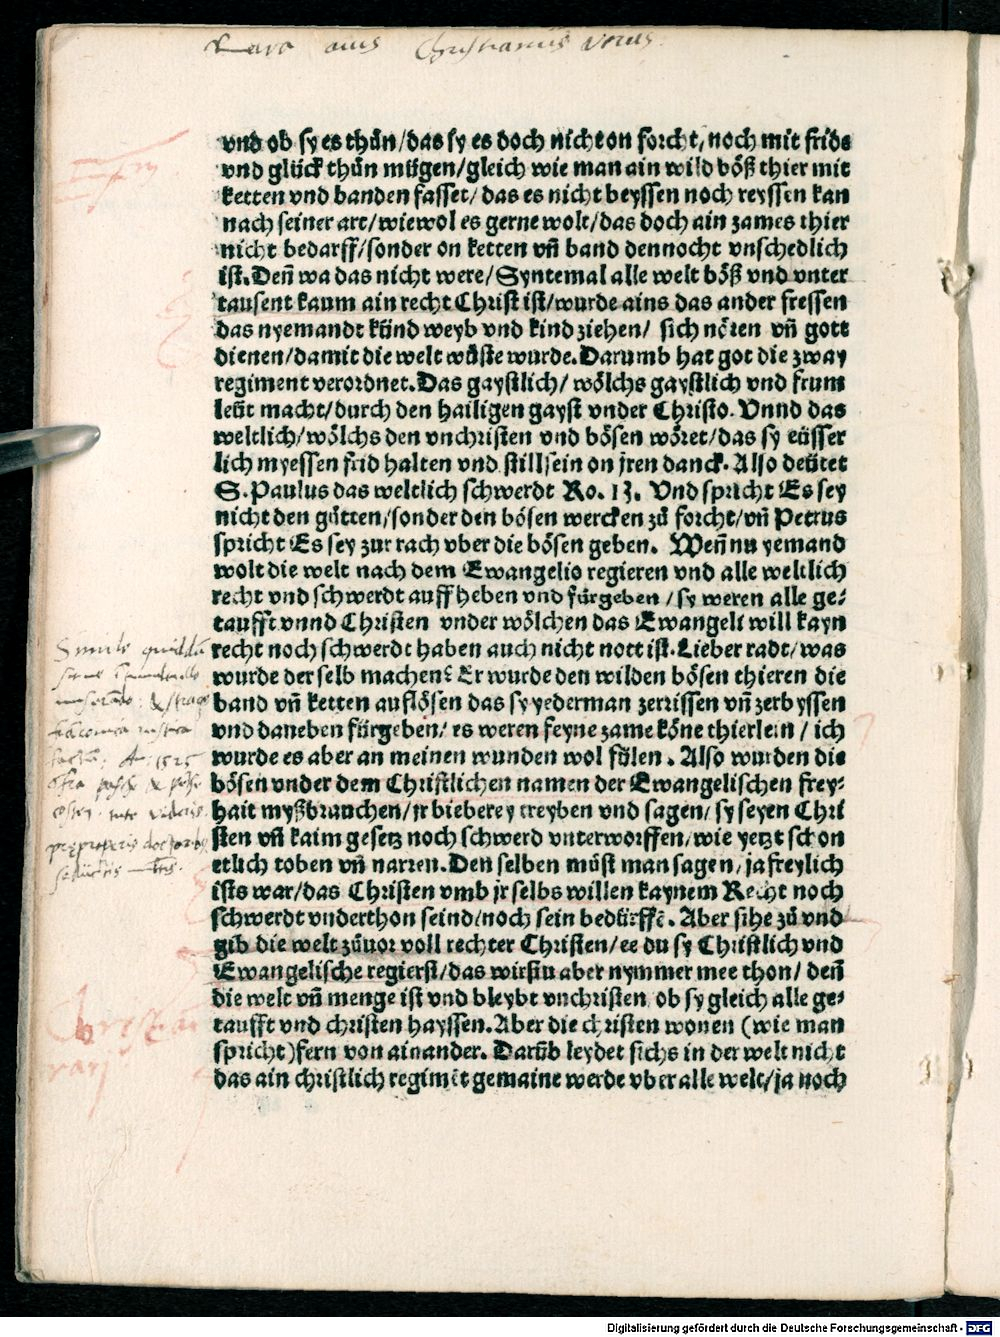 Rara avis Christianus verus.
vnd ob sy es thůn/das sy es doch nicht on forcht, noch mit fride
vnd glück thůn mügen/gleich wie man ain wild böß thier mit
ketten vnd banden fasset/das es nicht beyssen noch reyssen kan
nach seiner art/wiewol es gerne wolt/das doch ain zames thier
nicht bedarff/sonder on ketten vñ band dennocht vnschedlich
ist. Deñ wa das nicht were/Syntemal alle welt böß vnd vnter
tausent kaum ain recht Christ ist/wurde ains das ander fressen
das nyemandt künd weyb vnd kind ziehen/ sich nören vñ gott
dienen/damit die welt wüste wurde. Darumb hat got die zway
regiment verordnet. Das gaystlich/ wölchs gaystlich vnd frum
leüt macht/durch den hailigen gayst vnder Christo. Vnnd das
weltlich/wölchs den vnchristen vnd bösen wöret/das sy eüsser
lich myessen frid halten vnd still sein on jren danck. Also deütet
S. Paulus das weltlich schwerdt Ro. 13. Vnd spricht Es sey
nicht den gůtten/sonder den bösen wercken zů forcht/vñ Petrus
spricht Es sey zur rach vber die bösen geben. Weñ nu yemand
wolt die welt nach dem Ewangelio regieren vnd alle weltlich
recht vnd schwerdt auffheben vnd fürgeben /sy weren alle ge⸗
taufft vnnd Christen vnder wölchen das Ewangeli will kayn
recht noch schwerdt haben auch nicht nott ist. Lieber radt/was
wurde der selb machen? Er wurde den wilden bösen thieren die
band vñ ketten auflösen das sy yederman zerrissen vñ zerbyssen
vnd daneben fürgeben/ es weren feyne zame köne thierlein / ich
wurde es aber an meinen wunden wol fülen. Also wurden die
bösen vnder dem Christlichen namen der Ewangelischen frey⸗
hait myßbrauchen/jr bieberey treyben vnd sagen/sy seyen Chri
sten vñ kaim gesetz noch schwerd vnterworffen/wie yetzt schon
etlich toben vñ narren. Den selben můst man sagen/ja freylich
ists war/das Christen vmb jr selbs willen kaynem Recht noch
schwerdt vnderthon seind/noch sein bedürffē. Aber sihe zů vnd
gib die welt zůuor voll rechter Christen/ee du sy Christlich vnd
Ewangelische regierst/das wirstu aber nymmer mee thon/ deñ
die welt vñ menge ist vnd bleybt vnchristen ob sy gleich alle ge⸗
taufft vnd christen hayssen. Aber die christen wonen (wie man
spricht)fern von ainander. Darūb leydet sichs in der welt nicht
das ain christlich regimēt gemaine werde vber alle welt/ja noch
Simile quiddã
factũ, Aõ 1525
Christiani
rari
Digitalisierung gefördert durch die Deutsche Forschungsgemeinschaft - DFG